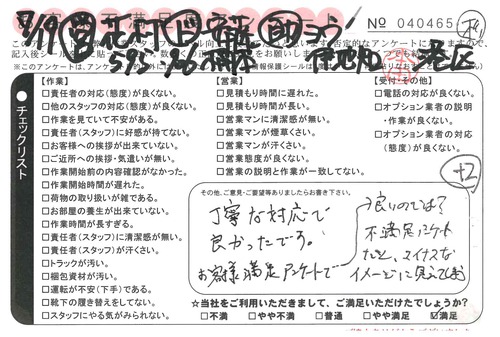 8/19
No 040465
チェックリスト
【作業】
□責任者の対応(態度)が良くない。
□他のスタッフの対応(態度)が良くない。
□作業を見ていて不安がある。
□責任者(スタッフ)に好感が持てない。
□お客様への挨拶が出来ていない。
□ご近所への挨拶・気遣いが無い。
□作業開始前の内容確認がなかった。
□作業開始時間が遅れた。
□荷物の取り扱いが雑である。
□お部屋の養生が出来ていない。
□作業時間が長すぎる。
□責任者(スタッフ)に清潔感が無い。
□責任者(スタッフ)が汗くさい。
□トラックが汚い。
□梱包資材が汚い。
□運転が不安(下手)である。
□靴下の履き替えをしてない。
□スタッフにやる気がみられない。
【営業】
□見積もり時間に遅れた。
□見積もり時間が長い。
□営業マンに清潔感が無い。
□営業マンが煙草くさい。
□営業マンが汗くさい。
□営業態度が良くない。
□営業の説明と作業が一致してない。
【受付・その他】
□電話の対応が良くない。
□オプション業者の説明
・作業が良くない。
□オプション業者の対応
(態度)が良くない。
+2
その他、ご意見・ご要望等ありましたらお書き下さい。
丁寧な対応で
良かったです。
お客様満足アンケートで
良いのでは?
不満足アンケート
だと、マイナスな
イメージに見えてしまう
☆当社をご利用いただきまして、ご満足いただけたでしょうか?
□不満 □やや不満 □普通 □やや満足 ☑満足